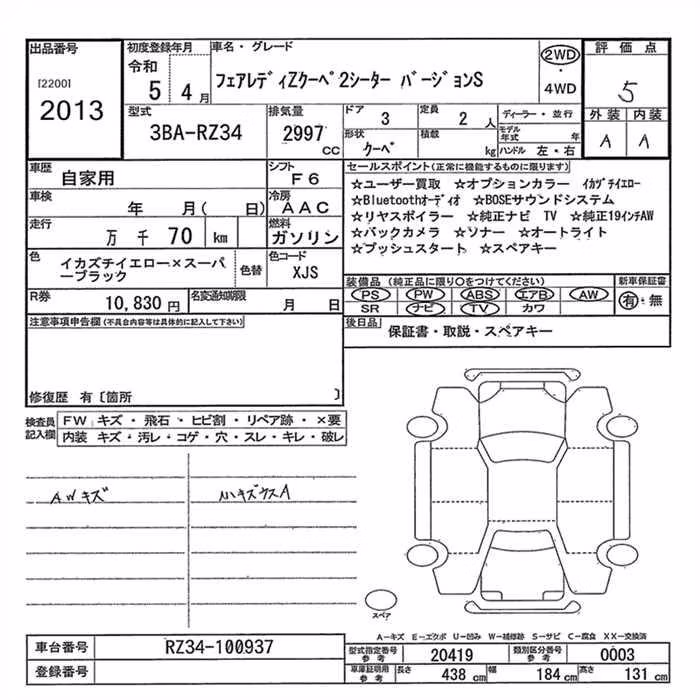 出品番号
[2200]
2013
初度登録年月
令和
5 4月
車名・グレード
フェアレディZクーペ2シーター バージョンS
2WD
・
4WD
評価点
5
外装 内装
A A
型式
3BA-RZ34
排気量
2997
CC
ドア 3
定員 2 人
形状 クーペ
積載 kg
ディーラー・並行
モデル年式 年
ハンドル 左・右
車歴 自家用
シフト F6
車検 年 月( 日)
冷房 AAC
走行 万 千 70 km
燃料 ガソリン
色 イカズチイエロー×スーパ
ーブラック
色替
色コード XJS
R券 10,830 円
名変通知期限 月 日
セールスポイント(正常に機能するものに限ります)
☆ユーザー買取 ☆オプションカラー イカヅチイエロー
☆Bluetoothオーディオ ☆BOSEサウンドシステム
☆リヤスポイラー ☆純正ナビ TV ☆純正19インチAW
☆バックカメラ ☆ソナー ☆オートライト
☆プッシュスタート ☆スペアキー
装備品 (純正品に限り○をつけてください)
PS PW ABS エアB AW
SR ナビ TV カワ
新車保証書
有・無
後日品 保証書・取説・スペアキー
注意事項申告欄(不具合内容等は具体的に記入して下さい)
修復歴 有〔箇所 〕
検査員
記入欄
FW キズ・飛石・ヒビ割・リペア跡・×要
内装 キズ・汚レ・コゲ・穴・スレ・キレ・破レ
AWキズ
小キズウスA
スペア
A-キズ E-エクボ U-凹み W-補修跡 S-サビ C-腐食 XX-交換済
車台番号 RZ34-100937
登録番号
型式指定番号
参考
20419
類別区分番号
参考
0003
車庫証明用
参考
長さ 438 cm 幅 184 cm 高さ 131 cm